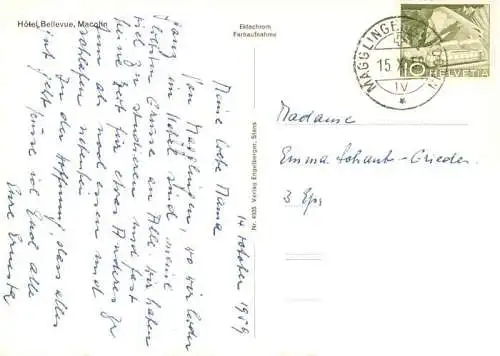 Hôtel Bellevue, Macolin
Ektachrom
Farbaufnahme
Nr. 4935 Verlag Engelberger, Stans
14 October 1959
Meine liebe Mama
Von Magglingen, wo wir leider
ganz im Hotel sind, meine
Grüsse an Alle. Wir haben
viel zu studieren und fast
keine Zeit für etwas Anderes
um als noch essen und
schlafen
In der Hoffnung dass alles
gut geht küsse ich Euch alle
Eure Ernesta
MAGGLINGEN
15 X
IV
10
HELVETIA
Madame
Emma Schaub-Grieder
3 Eps